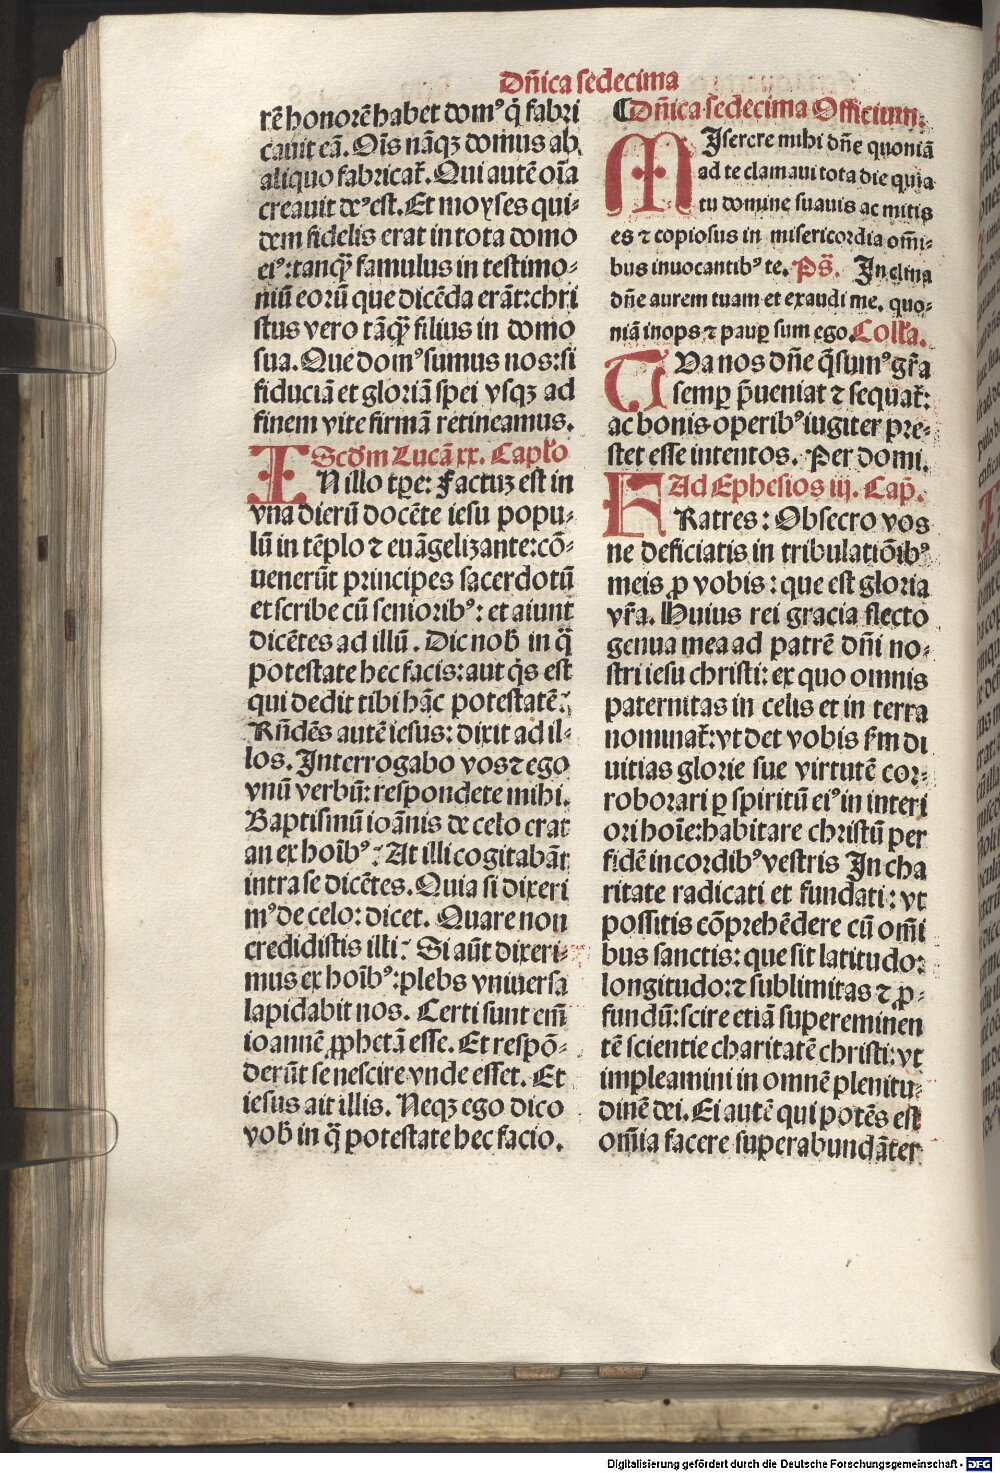 Dn̄ica sedecima
rē honorē habet domꝰ q̄ fabri
cauit eā. Oīs nāqꝫ domus ab
aliquo fabricat᷑. Qui autē oīa
creauit deꝰ est. Et moyses qui⸗
dem fidelis erat in tota domo
eiꝰ: tanqꝫ̄ famulus in testimo⸗
niū eorū que dicēda erāt: chri
stus vero tāqꝫ̄ filius in domo
sua. Que domꝰ sumus nos: si
fiduciā et gloriā spei vsqꝫ ad
finem vite firmā retineamus.
Scd̄m Lucā xx. Caplo
IN illo tp̄e: Factuꝫ est in
vna dierū docēte iesu popu⸗
lū in tēplo ⁊ euāgelizante: cō⸗
uenerūt principes sacerdotū
et scribe cū senioribꝰ: et aiunt
dicētes ad illū. Dic nob̄ in q̄
potestate hec facis: aut q̄s est
qui dedit tibi hāc potestatē:
Rn̄dēs autē iesus: dixit ad il⸗
los. Interrogabo vos ⁊ ego
vnū verbū: respondete mihi.
Baptismū ioānis de celo erat
an ex hoībꝰ: At illi cogitabāt
intra se dicētes. Quia si dixeri
mꝰ de celo: dicet. Quare non
credidistis illi: Si aūt dixeri⸗
mus ex hoībꝰ: plebs vniuersa
lapidabit nos. Certi sunt em̄
ioannē ꝓphetā esse. Et respō⸗
derūt se nescire vnde esset. Et
iesus ait illis. Neqꝫ ego dico
vob̄ in q̄ potestate hec facio.
⸿Dn̄ica sedecima Officium.
MIserere mihi dn̄e quoniā
ad te clamaui tota die quia
tu domine suauis ac mitis
es ⁊ copiosus in misericordia om̄i⸗
bus inuocantibꝰ te. Ps̄. Inclina
dn̄e aurem tuam et exaudi me. quo⸗
niā inops ⁊ paup̲ sum ego. Coll̄a.
TUa nos dn̄e q̄sumꝰ gr̄a
semp̲ p̄ueniat ⁊ sequat᷑:
ac bonis operibꝰ iugiter pre⸗
stet esse intentos. Per domi.
Ad Ephesios iij. Cap̄.
FRatres: Obsecro vos
ne deficiatis in tribulatiōibꝰ
meis ꝑ vobis: que est gloria
vr̄a. Huius rei gracia flecto
genua mea ad patrē dn̄i no⸗
stri iesu christi: ex quo omnis
paternitas in celis et in terra
nominat᷑: vt det vobis ẜm di
uitias glorie sue virtutē cor⸗
roborari ꝑ spiritū eiꝰ in interi
ori hoīe: habitare christū per
fidē in cordibꝰ vestris In cha
ritate radicati et fundati: vt
possitis cōprehēdere cū om̄i
bus sanctis: que sit latitudo:
longitudo: ⁊ sublimitas ⁊ ꝓ⸗
fundū: scire etiā supereminen
tē scientie charitatē christi: vt
impleamini in omnē plenitu⸗
dinē dei. Ei autē qui potēs est
om̄ia facere superabundāter
Digitalisierung gefördert durch die Deutsche Forschungsgemeinschaft - DFG